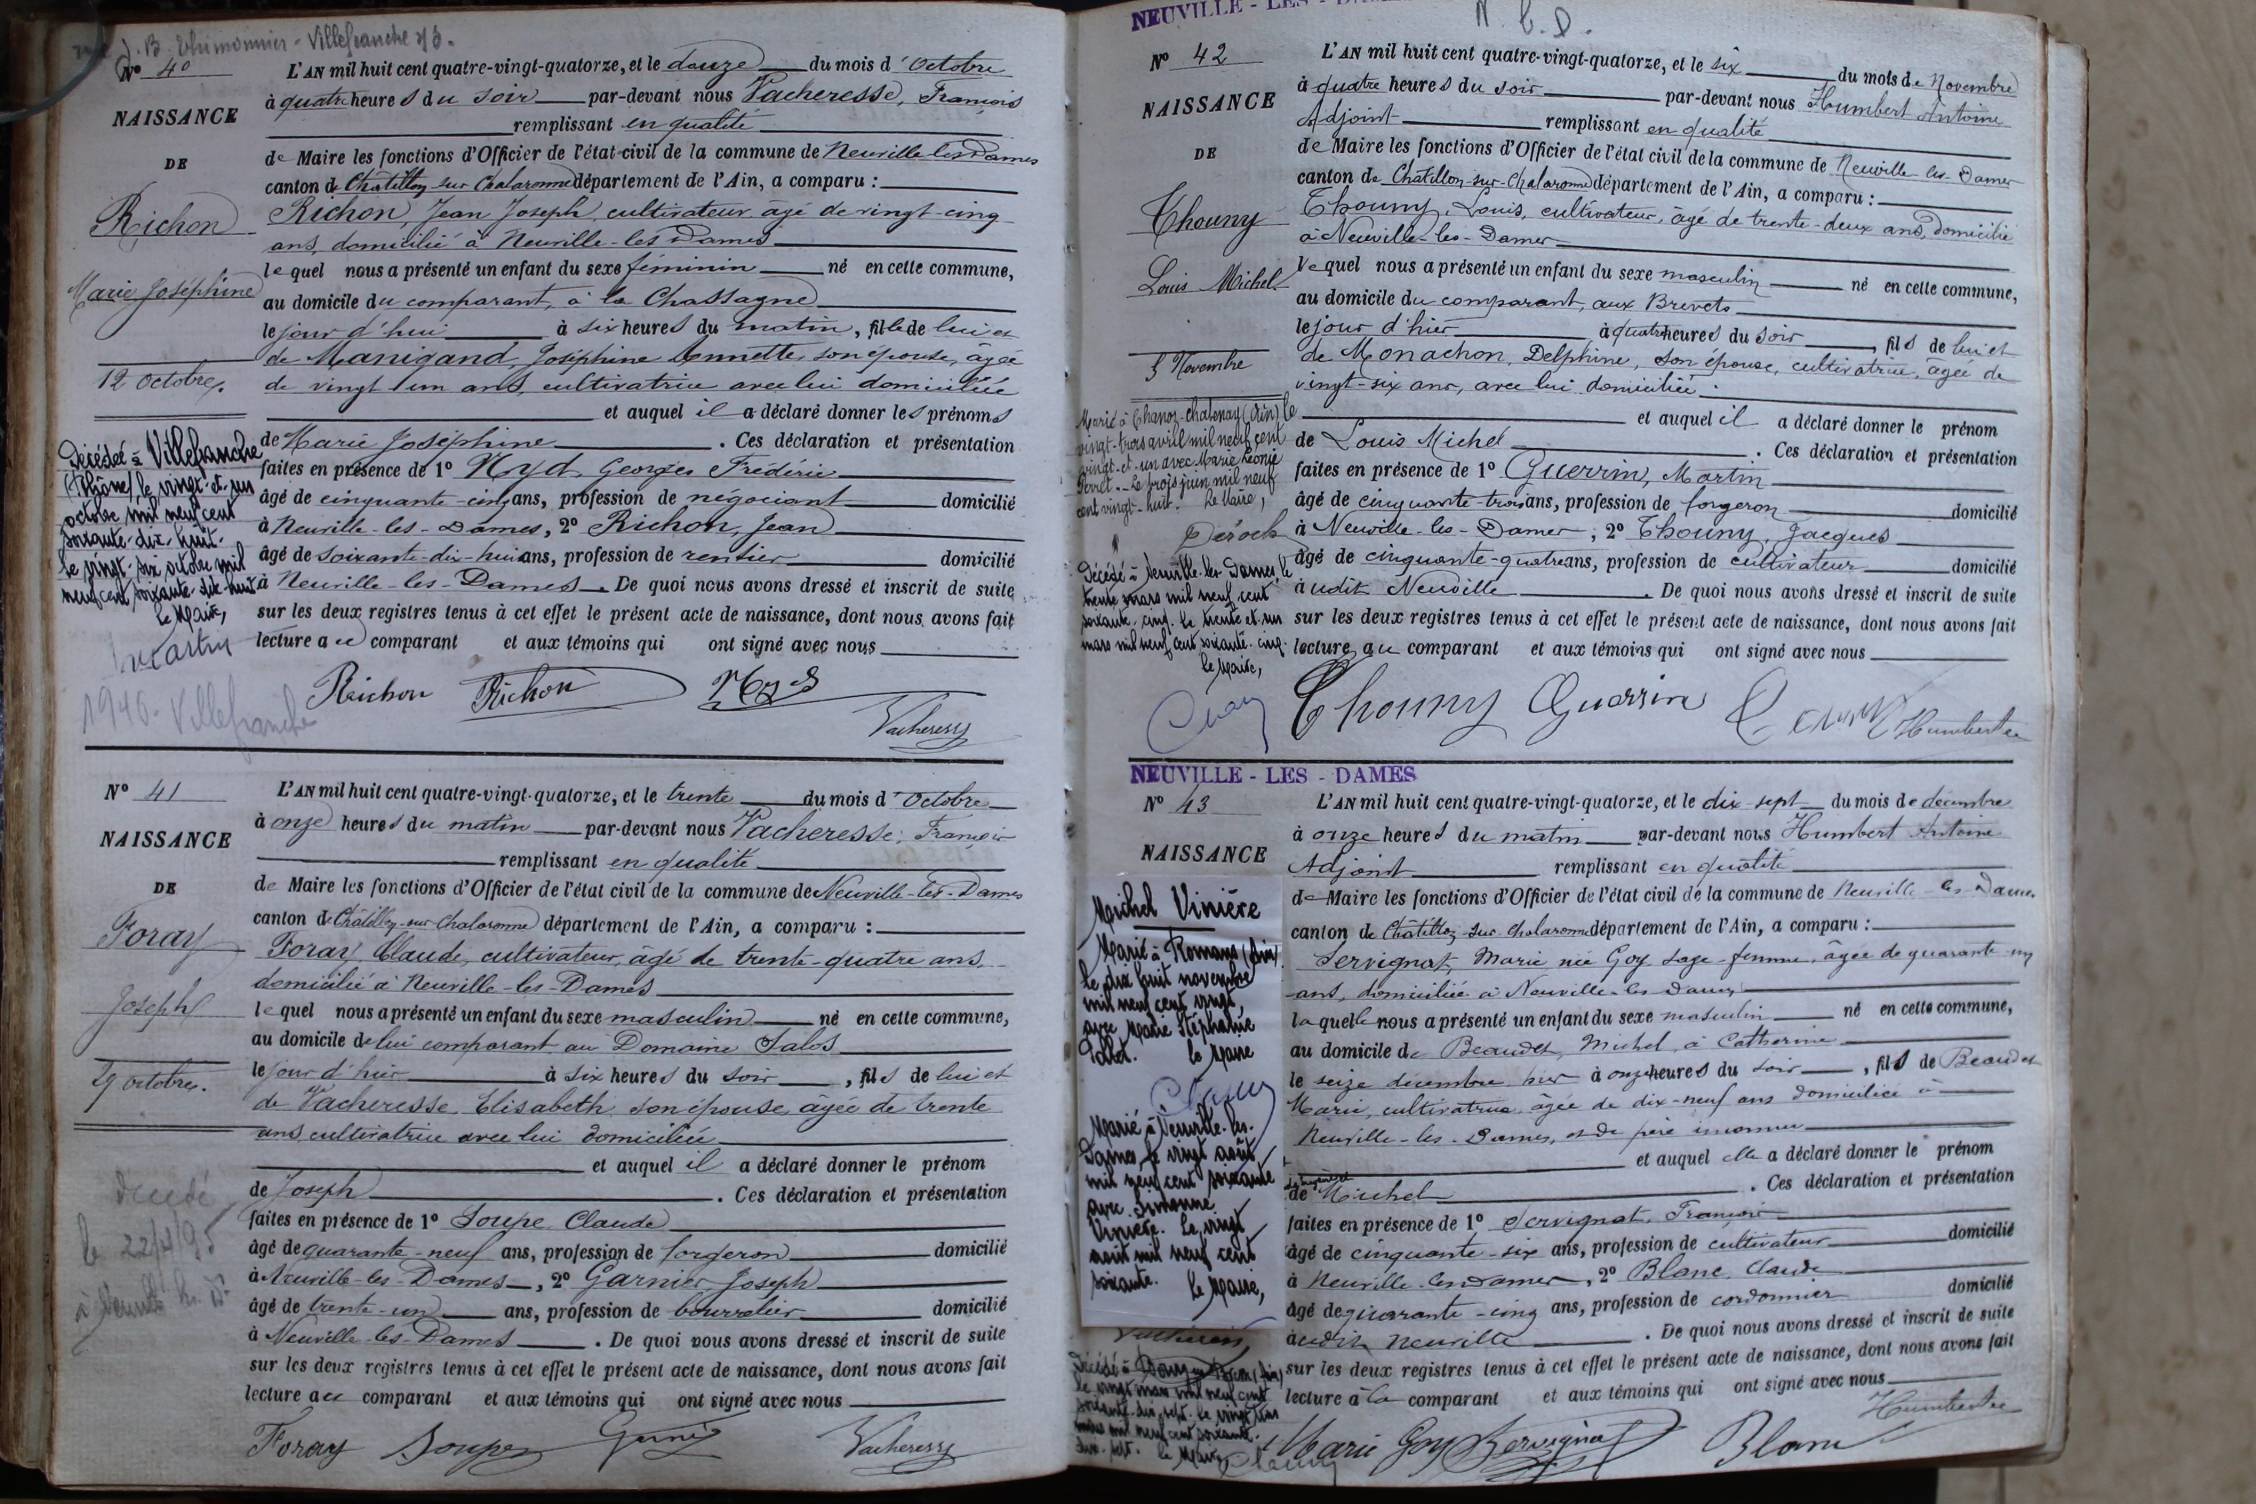 J. B. Thimonnier - Villefranche s/S.
N° 40
NAISSANCE
DE
Richon
Marie Joséphine
12 Octobre.
L'AN mil huit cent quatre-vingt-quatorze, et le douze du mois d'Octobre
à quatre heures du soir par-devant nous Vacheresse, François
remplissant en qualité
de Maire les fonctions d'Officier de l'état-civil de la commune de Neuville-les-Dames
canton de Châtillon sur Chalaronne département de l'Ain, a comparu :
Richon, Jean Joseph, cultivateur, âgé de vingt-cinq
ans, domicilié à Neuville-les-Dames
lequel nous a présenté un enfant du sexe féminin né en cette commune,
au domicile du comparant, à la Chassagne
le jour d'hui à six heures du matin, fille de lui et
de Manigand, Joséphine Bennette, son épouse, âgée
de vingt un ans, cultivatrice avec lui domiciliée
et auquel il a déclaré donner les prénoms
de Marie Joséphine. Ces déclaration et présentation
faites en présence de 1° Nyd, Georges Frédéric
âgé de cinquante-cinq ans, profession de négociant domicilié
à Neuville-les-Dames, 2° Richon, Jean
âgé de soixante-dix-huit ans, profession de rentier domicilié
à Neuville-les-Dames. De quoi nous avons dressé et inscrit de suite
sur les deux registres tenus à cet effet le présent acte de naissance, dont nous avons fait
lecture au comparant et aux témoins qui ont signé avec nous
Décédée à Villefranche
(Rhône) le vingt-et-un
octobre mil neuf cent
soixante-dix-huit.
Le vingt-six octobre mil
neuf cent soixante-dix-huit
Le Maire,
1946. Villefranche
Richon Richon
Vacheresse
N° 41
NAISSANCE
DE
Foray
Joseph
29 octobre.
L'AN mil huit cent quatre-vingt-quatorze, et le trente du mois d'Octobre
à onze heures du matin par-devant nous Vacheresse, François
remplissant en qualité
de Maire les fonctions d'Officier de l'état civil de la commune de Neuville-les-Dames
canton de Châtillon-sur-Chalaronne département de l'Ain, a comparu :
Foray, Claude, cultivateur, âgé de trente-quatre ans,
domicilié à Neuville-les-Dames
lequel nous a présenté un enfant du sexe masculin né en cette commune,
au domicile de lui comparant au Domaine Salos
le jour d'hier à six heures du soir, fils de lui et
de Vacheresse Elisabeth, son épouse, âgée de trente
ans cultivatrice avec lui domiciliée
et auquel il a déclaré donner le prénom
de Joseph. Ces déclaration et présentation
faites en présence de 1° Soupe Claude
âgé de quarante-neuf ans, profession de forgeron domicilié
à Neuville-les-Dames, 2° Garnier Joseph
âgé de trente-un ans, profession de bourrelier domicilié
à Neuville-les-Dames. De quoi nous avons dressé et inscrit de suite
sur les deux registres tenus à cet effet le présent acte de naissance, dont nous avons fait
lecture au comparant et aux témoins qui ont signé avec nous
décédé
le 22/4/95
à Neuville les D.
Foray Soupe Vacheresse
NEUVILLE - LES - DAMES
N. L. D.
N° 42
NAISSANCE
DE
Thouny
Louis Michel
5 Novembre
L'AN mil huit cent quatre-vingt-quatorze, et le six du mois de Novembre
à quatre heures du soir par-devant nous Humbert Antoine
Adjoint remplissant en qualité
de Maire les fonctions d'Officier de l'état civil de la commune de Neuville-les-Dames
canton de Châtillon-sur-Chalaronne département de l'Ain, a comparu :
Thouny, Louis, cultivateur, âgé de trente-deux ans, domicilié
à Neuville-les-Dames
lequel nous a présenté un enfant du sexe masculin né en cette commune,
au domicile du comparant, aux Brevets
le jour d'hier à quatre heures du soir, fils de lui et
de Monachon, Delphine, son épouse, cultivatrice, âgée de
vingt-six ans, avec lui domiciliée.
et auquel il a déclaré donner le prénom
de Louis Michel. Ces déclaration et présentation
faites en présence de 1° Guerrin, Martin
âgé de cinquante-trois ans, profession de forgeron domicilié
à Neuville-les-Dames; 2° Thouny, Jacques
âgé de cinquante-quatre ans, profession de cultivateur domicilié
à udit Neuville. De quoi nous avons dressé et inscrit de suite
sur les deux registres tenus à cet effet le présent acte de naissance, dont nous avons fait
lecture au comparant et aux témoins qui ont signé avec nous
Marié à Chanoz-Chatenay (Ain) le
vingt-trois avril mil neuf cent
vingt-et-un avec Marie Léonie
Perret. Le trois juin mil neuf
cent vingt-huit. Le Maire,
Décédé à Neuville-les-Dames, le
trente mars mil neuf cent
soixante-cinq. Le trente et un
mars mil neuf cent soixante-cinq.
Le Maire,
Thouny Guerrin Humbert
NEUVILLE - LES - DAMES
N° 43
NAISSANCE
L'AN mil huit cent quatre-vingt-quatorze, et le dix-sept du mois de décembre
à onze heures du matin par-devant nous Humbert Antoine
Adjoint remplissant en qualité
de Maire les fonctions d'Officier de l'état civil de la commune de Neuville-les-Dames
canton de Châtillon-sur-Chalaronne département de l'Ain, a comparu :
Servignat, Marie née Goy, sage-femme, âgée de quarante-un
ans, domiciliée à Neuville-les-Dames
laquelle nous a présenté un enfant du sexe masculin né en cette commune,
au domicile de Beaudet, Michel, à Catherine
le seize décembre hier à onze heures du soir, fils de Beaudet
Marie, cultivatrice, âgée de dix-neuf ans domiciliée à
Neuville-les-Dames, et de père inconnu
et auquel elle a déclaré donner le prénom
de Michel. Ces déclaration et présentation
faites en présence de 1° Servignat, François
âgé de cinquante-six ans, profession de cultivateur domicilié
à Neuville-les-Dames, 2° Blanc, Claude
âgé de quarante-cinq ans, profession de cordonnier domicilié
à udit Neuville. De quoi nous avons dressé et inscrit de suite
sur les deux registres tenus à cet effet le présent acte de naissance, dont nous avons fait
lecture à la comparant et aux témoins qui ont signé avec nous
Michel Vinière
Marié à Romans (Ain)
le dix huit novembre
mil neuf cent vingt
avec Marie Stéphanie
Le Maire
Marié à Neuville-les-
Dames, le vingt août
mil neuf cent soixante
avec Simonne
Vinière. Le vingt
août mil neuf cent
soixante.
Le Maire,
Décédé à
le vingt mars mil neuf cent
soixante-dix-sept. Le vingt trois
mars mil neuf cent soixante-
dix-sept. Le Maire
Marie Goy Servignat Blanc Humbert